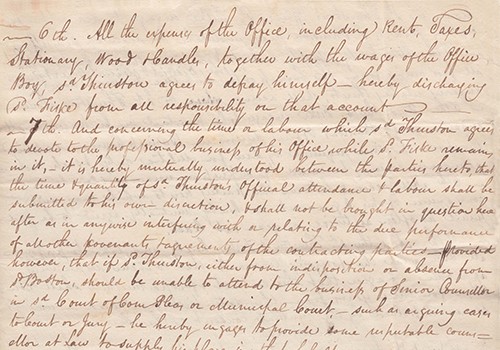 — 6th. All the expenses of the Office, including Rent, Taxes,
Stationary, Wood & Candles, together with the wages of the Office
Boy, sd Thurston agrees to defray himself — hereby discharging
sd Fiske from all responsibility on that account
— 7th. And concerning the time or labour which sd Thurston agrees
to devote to the professional business of his Office while sd Fiske remains
in it, — it is hereby mutually understood between the parties hereto, that
the time & quantity of sd Thurston's Official attendance & labour shall be
submitted to his own discretion, & shall not be brought in question here
after as in anywise interfering with or relating to the due performance
of all other covenants & agreements of the contracting parties provided
however, that if sd Thurston, either from indisposition or absence from
sd Boston, should be unable to attend to the business of Senior Counsellor
in sd Court of Com Pleas or Municipal Court, — such as arguing cases
to Court or Jury — he hereby engages to provide some reputable couns-
ellor at Law to supply his place in that behalf